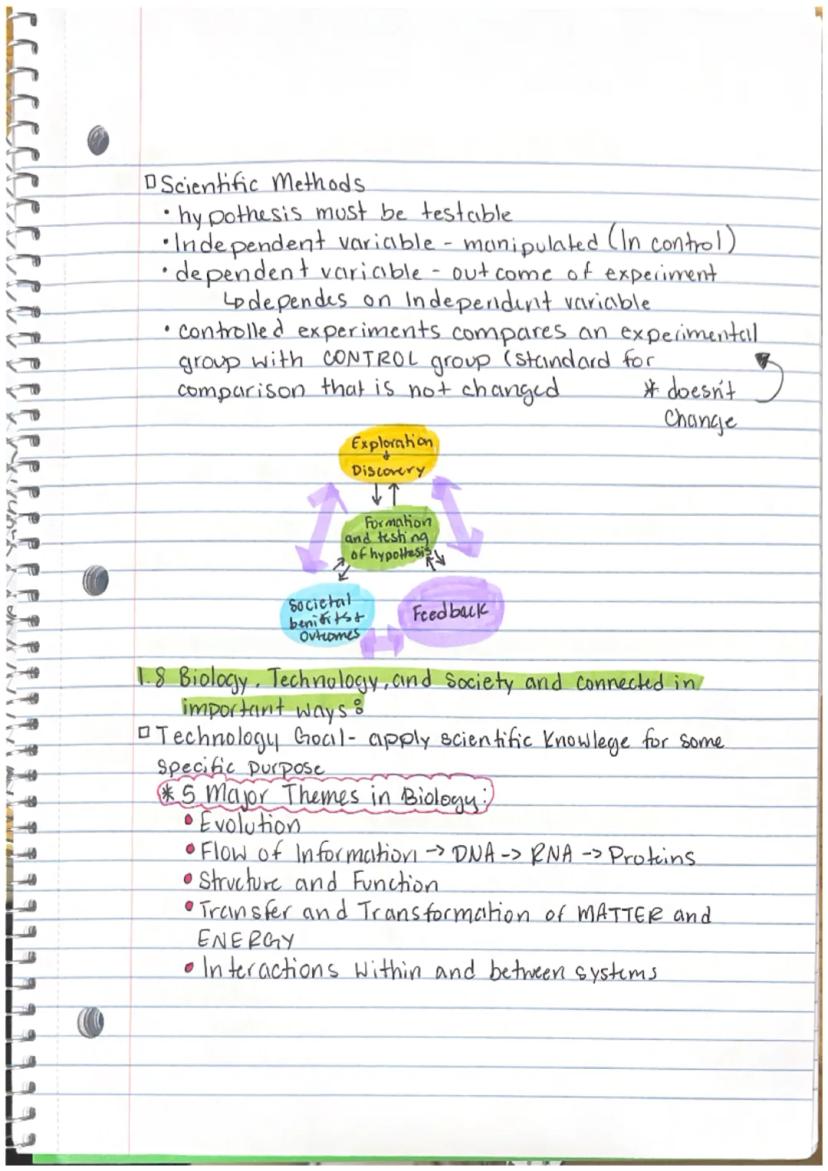 □ Scientific Methods
• hypothesis must be testable
• Independent variable - manipulated (In control)
• dependent variable - outcome of experiment
↳ dependes on Independent variable
• controlled experiments compares an experimental
group with CONTROL group (standard for
comparison that is not changed
* doesn't
Change
Exploration
+
Discovery
Formation
and testing
of hypothesis
Societal
benifits +
Outcomes
Feedback
1.8 Biology, Technology, and Society and connected in
important ways:
□ Technology Goal - apply scientific Knowlege for some
specific purpose
* 5 Major Themes in Biology:
• Evolution
• Flow of Information → DNA -> RNA -> Proteins
• Structure and Function
• Transfer and Transformation of MATTER and
ENERGY
• Interactions within and between systems